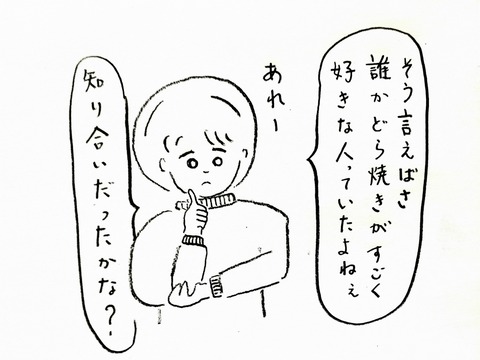 そう言えばさ
誰かどら焼きがすごく
好きな人っていたよねぇ
あれー
知り合いだったかな?